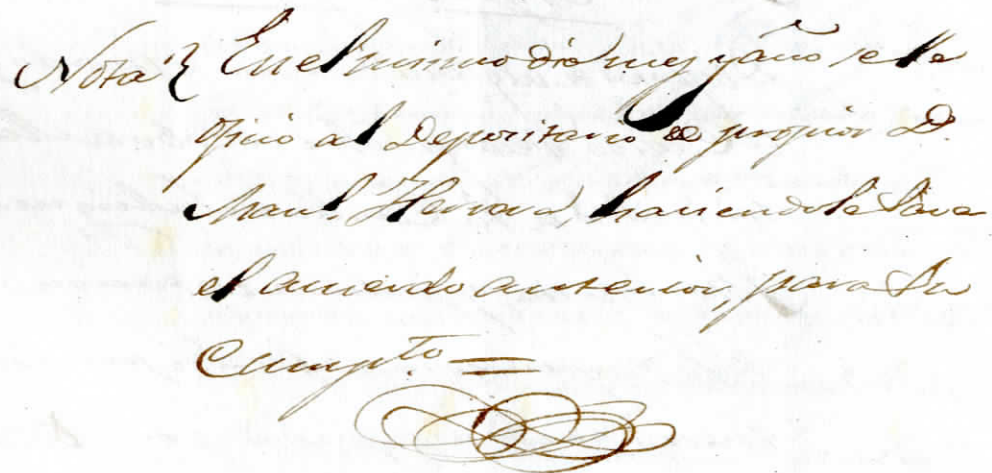 Nota } En el mismo dia mes y año se le
ofició al Depositario de propios D.
Manl. Herrera haciendole saver
el acuerdo anterior, para su
Cumpto. —